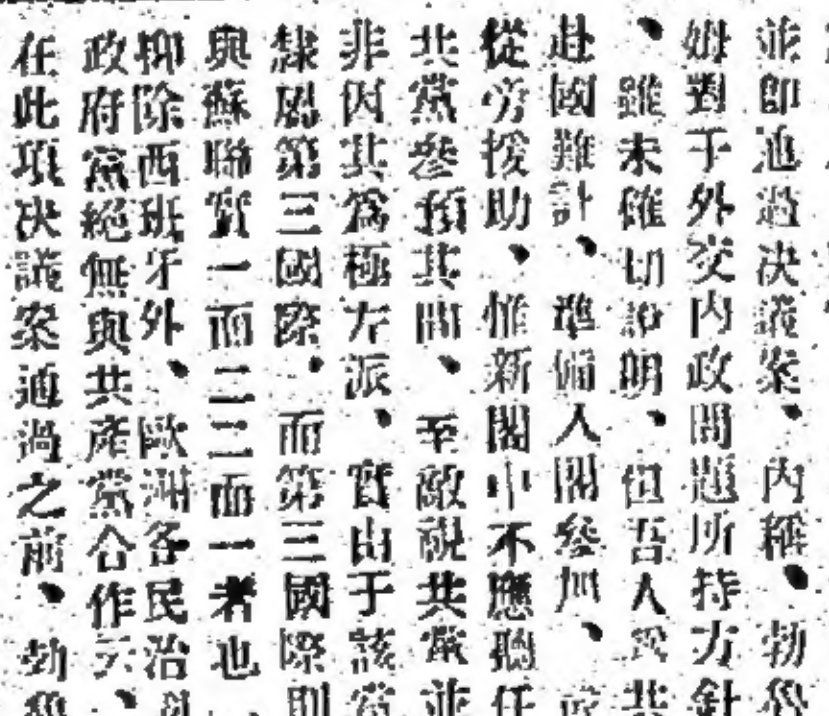 並即通過决議案、內稱、勃魯
姆對于外交內政問題所持方針
、雖未確切說明、但吾人爲共
赴國難計、準備入閣參加、或
從旁援助、惟新閣中不應聽任
共黨參預其間、至敵視共黨並
非因其爲極左派、實由于該黨
隸屬第三國際、而第三國際則
與蘇聯實一而二二而一者也、
抑除西班牙外、歐洲各民治
政府黨絕無與共產黨合作矣、
在此項决議案通過之前、勃魯